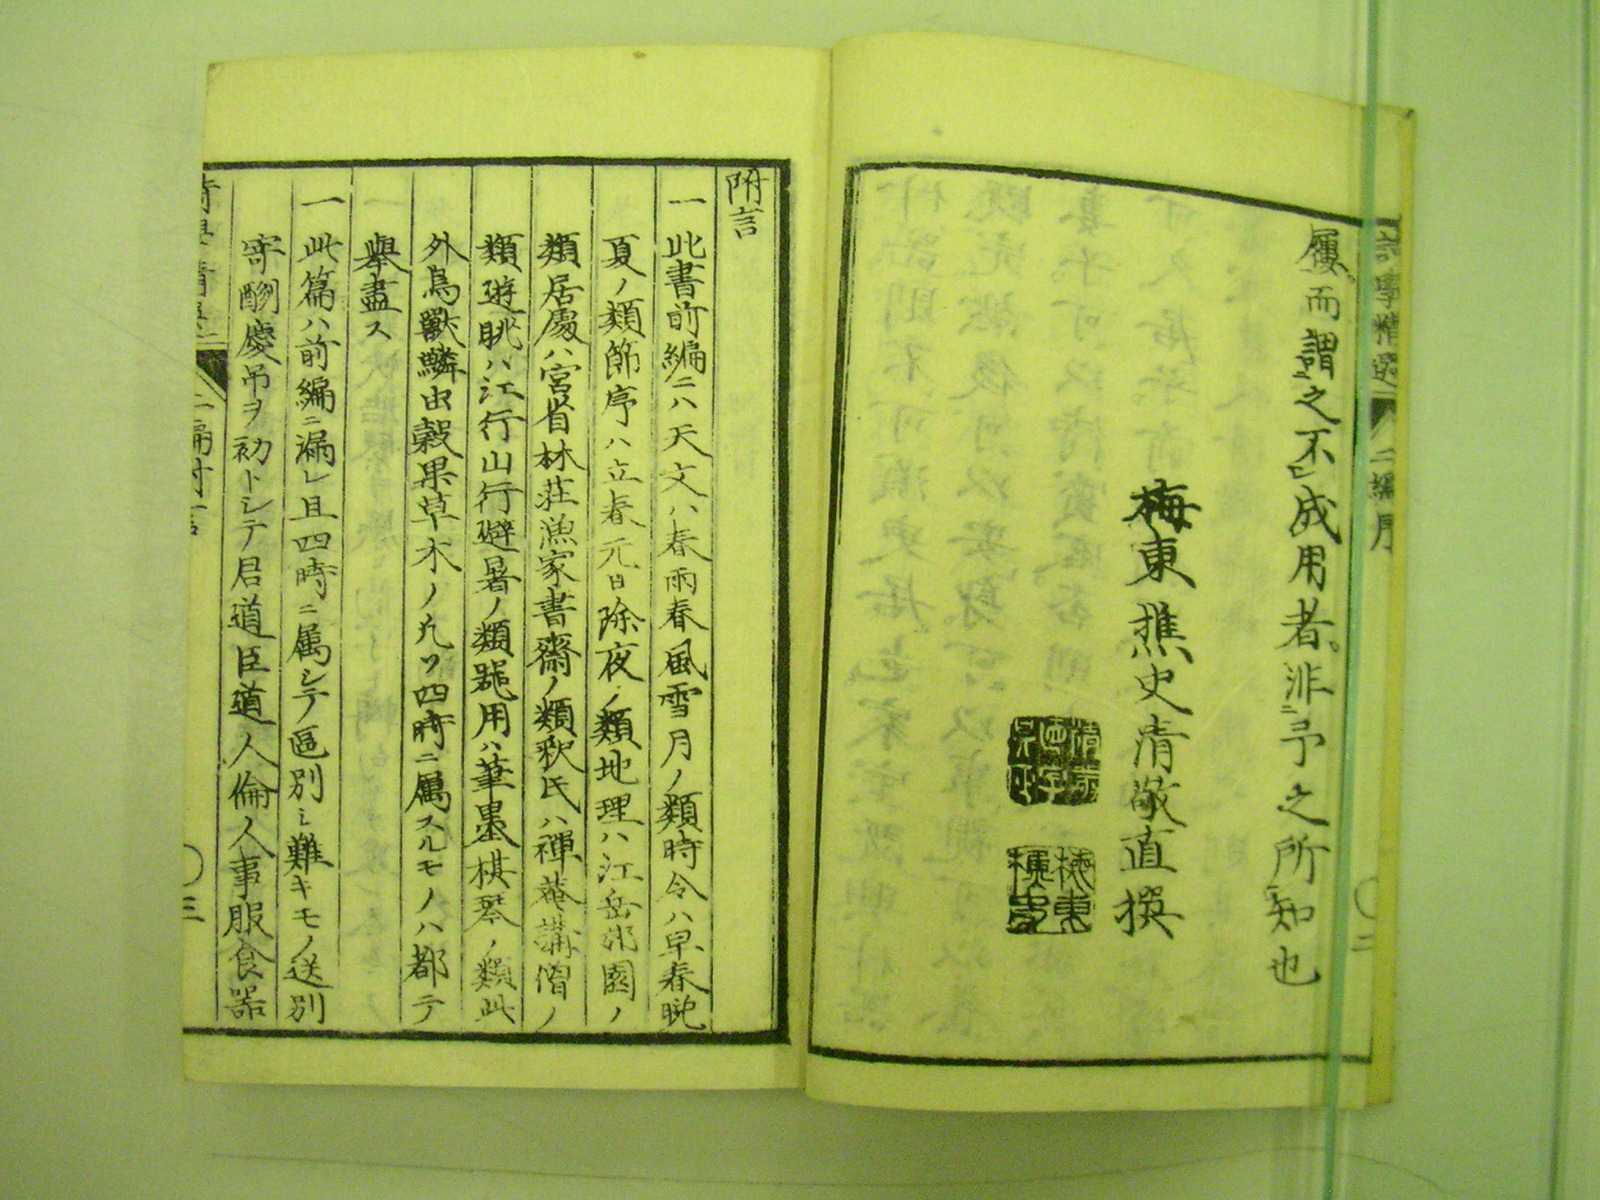 詩學精選
二編序
二
履而謂之不成用者非予之所知也
梅東樵史清敬直撰
梅東
樵史
附言
一此書前編ニハ天文ハ春雨春風雪月ノ類時令ハ早春晩
夏ノ類節序ハ立春元日除夜ノ類地理ハ江岳郊園ノ
類居處ハ宮省林荘漁家書齋ノ類釈氏ハ禪菴講僧ノ
類遊眺ハ江行山行避暑ノ類器用ハ筆墨棋琴ノ類此
外鳥獸鱗虫穀果草木ノ凡ソ四時ニ属スルモノハ都テ
擧盡ス
一此篇ハ前編ニ漏レ且四時ニ属シテ區別シ難キモノ送別
寄酬慶吊ヲ初トシテ君道臣道人倫ノ人事服食器
詩學精選
二編附言
三